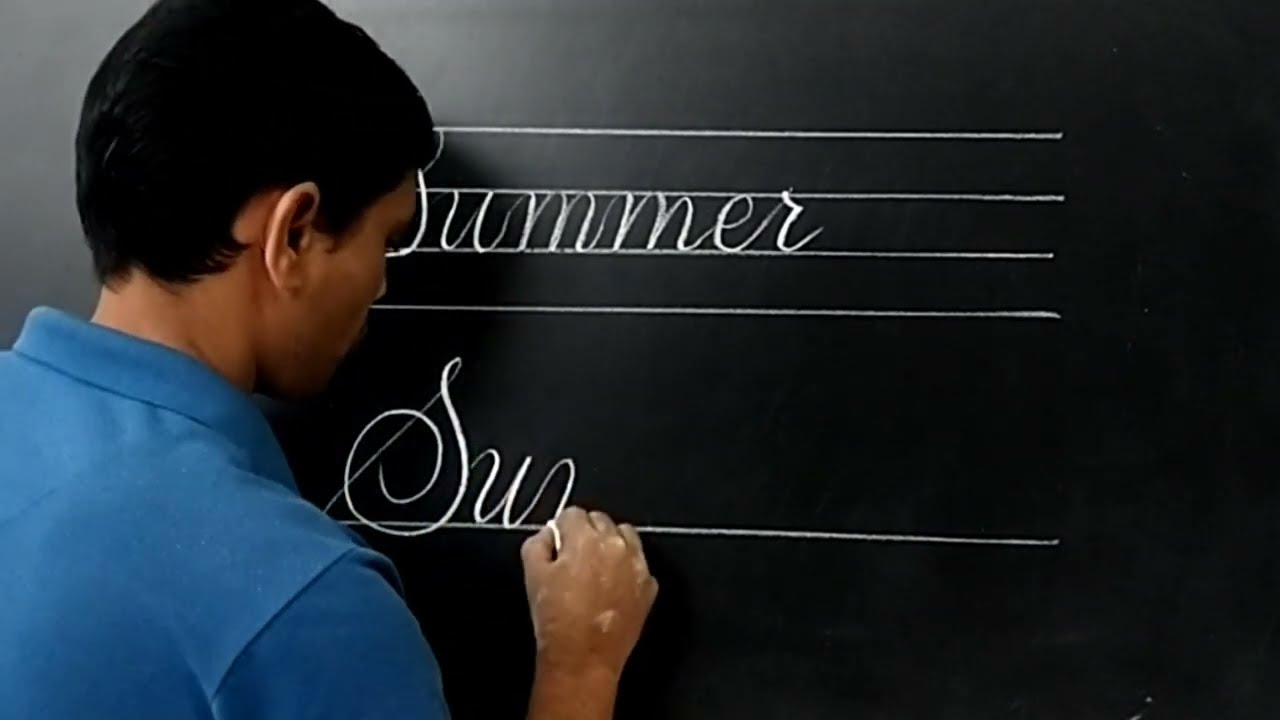 Summer
Sun